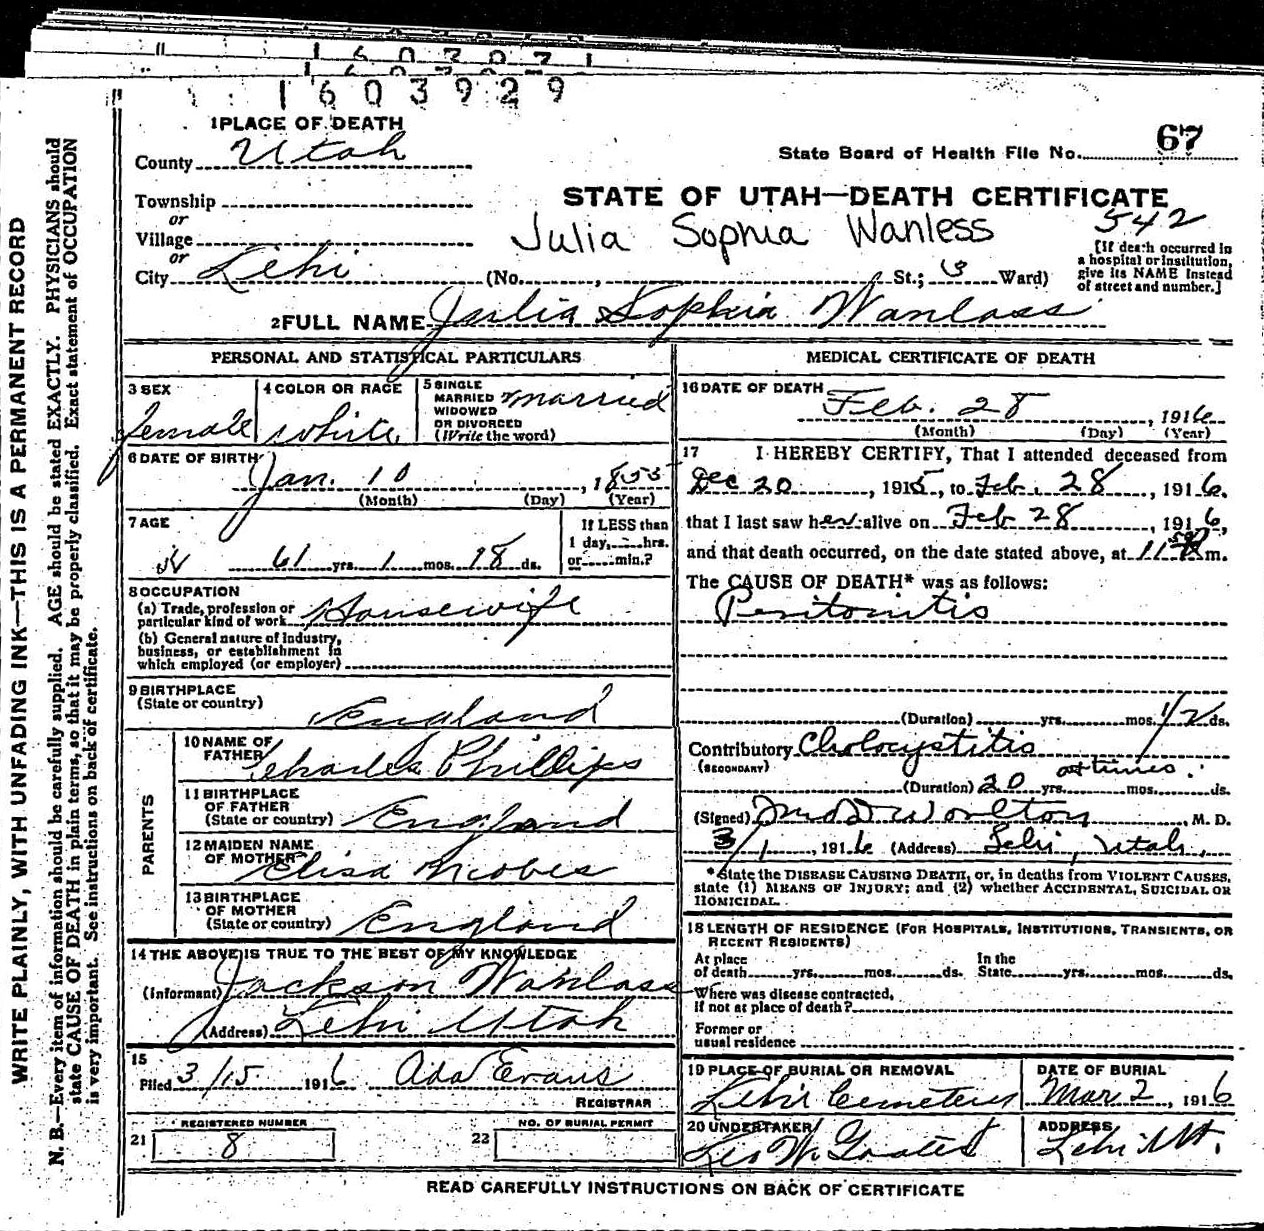 1603071
1603929
1 PLACE OF DEATH
County Utah
State Board of Health File No. 67
Township
or
Village
or
City Lehi (No. , St.; 3 Ward)
STATE OF UTAH—DEATH CERTIFICATE
Julia Sophia Wanless 542
[If death occurred in
a hospital or institution,
give its NAME instead
of street and number.]
2 FULL NAME Julia Sophia Wanlass
PERSONAL AND STATISTICAL PARTICULARS
3 SEX
female
4 COLOR OR RACE
white
5 SINGLE
MARRIED
WIDOWED
OR DIVORCED
(Write the word)
married
6 DATE OF BIRTH
Jan. 10, 1855
(Month) (Day) (Year)
7 AGE
61 yrs. 1 mos. 18 ds.
If LESS than
1 day, hrs.
or min.?
8 OCCUPATION
(a) Trade, profession or
particular kind of work Housewife
(b) General nature of industry,
business, or establishment in
which employed (or employer)
9 BIRTHPLACE
(State or country) England
PARENTS
10 NAME OF
FATHER Charles Phillips
11 BIRTHPLACE
OF FATHER
(State or country) England
12 MAIDEN NAME
OF MOTHER Elisa
13 BIRTHPLACE
OF MOTHER
(State or country) England
14 THE ABOVE IS TRUE TO THE BEST OF MY KNOWLEDGE
(Informant) Jackson Wanlass
(Address) Lehi Utah
15
Filed 3/15 1916 Ada Evans
REGISTRAR
REGISTERED NUMBER
21 8
NO. OF BURIAL PERMIT
22
MEDICAL CERTIFICATE OF DEATH
16 DATE OF DEATH
Feb. 28, 1916
(Month) (Day) (Year)
17 I HEREBY CERTIFY, That I attended deceased from
Dec 20, 1915, to Feb. 28, 1916.
that I last saw her alive on Feb 28, 1916,
and that death occurred, on the date stated above, at 11 m.
The CAUSE OF DEATH* was as follows:
Peritonitis
(Duration) yrs. mos. 1/2 ds.
Contributory Cholocystitis
(SECONDARY) at times
(Duration) 20 yrs. mos. ds.
(Signed) Worlton, M. D.
3/1, 1916 (Address) Lehi, Utah.
*State the DISEASE CAUSING DEATH, or, in deaths from VIOLENT CAUSES,
state (1) MEANS OF INJURY; and (2) whether ACCIDENTAL, SUICIDAL OR
HOMICIDAL.
18 LENGTH OF RESIDENCE (FOR HOSPITALS, INSTITUTIONS, TRANSIENTS, OR
RECENT RESIDENTS)
At place
of death yrs. mos. ds.
In the
State yrs. mos. ds.
Where was disease contracted,
if not at place of death?
Former or
usual residence
19 PLACE OF BURIAL OR REMOVAL
Lehi Cemetery
DATE OF BURIAL
Mar 2, 1916
20 UNDERTAKER
Goates
ADDRESS
Lehi Ut.
READ CAREFULLY INSTRUCTIONS ON BACK OF CERTIFICATE
WRITE PLAINLY, WITH UNFADING INK—THIS IS A PERMANENT RECORD
N. B.—Every item of information should be carefully supplied. AGE should be stated EXACTLY. PHYSICIANS should
state CAUSE OF DEATH in plain terms, so that it may be properly classified. Exact statement of OCCUPATION
is very important. See instructions on back of certificate.